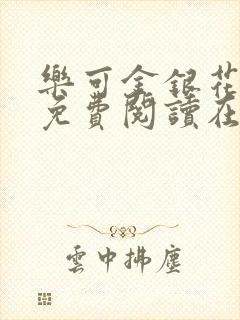 樂可金銀花
免費閱讀在
雲中拂塵